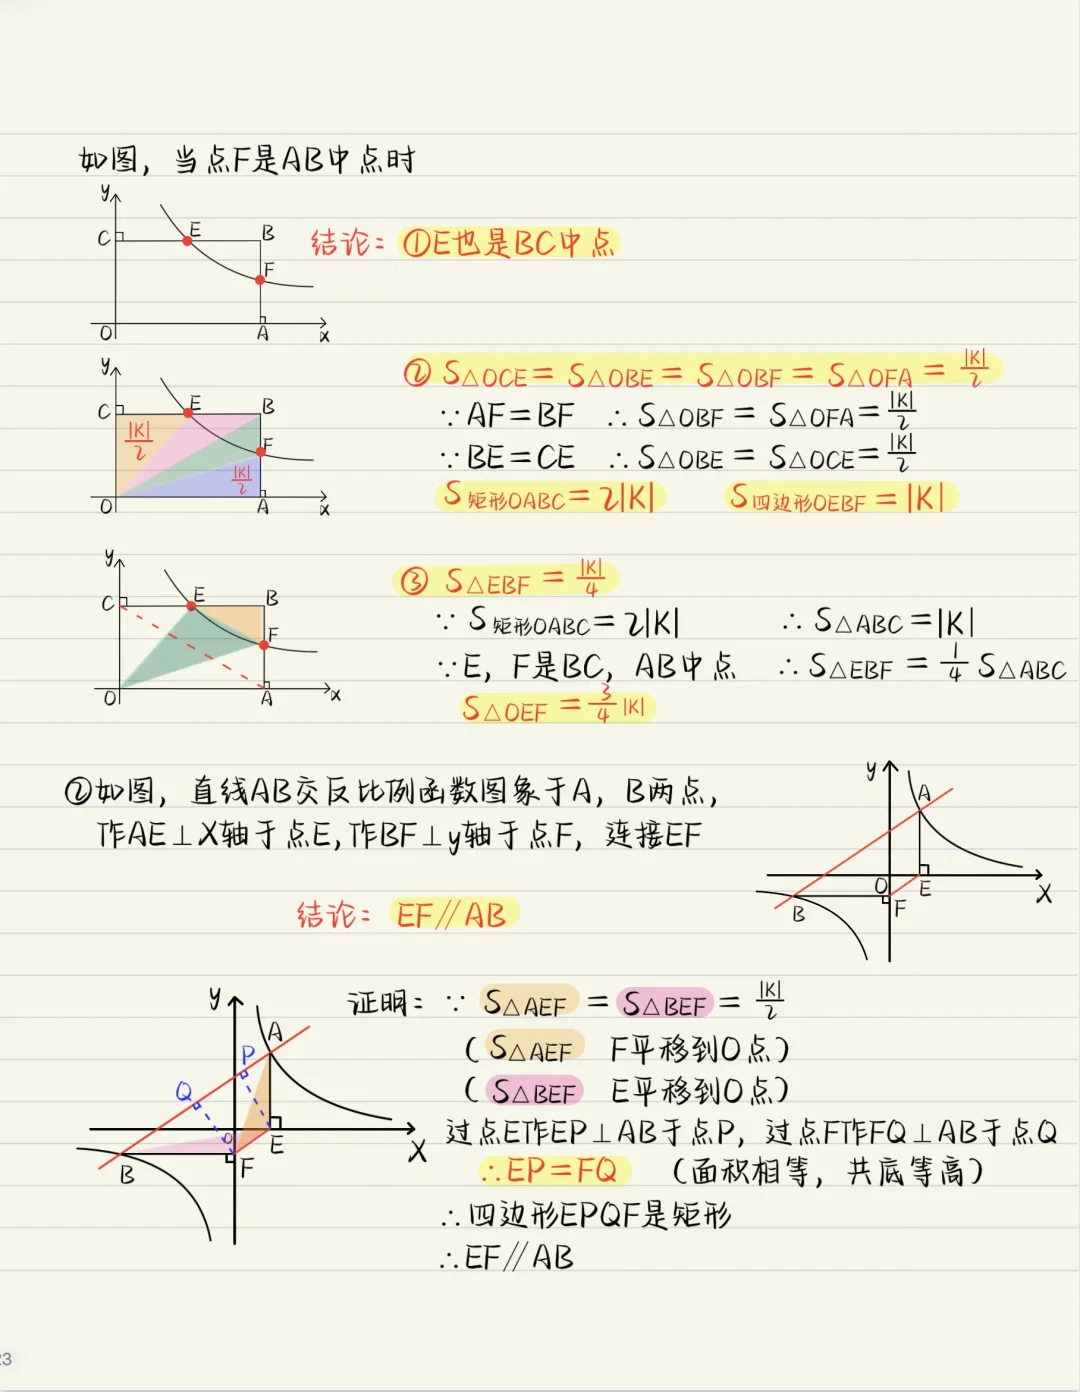 如图，当点F是AB中点时
y
C
E
B
F
O
A
x
结论：①E也是BC中点
y
C
E
B
|K|/2
F
|K|/2
O
A
x
②S△OCE=S△OBE=S△OBF=S△OFA=|K|/2
∵AF=BF ∴S△OBF=S△OFA=|K|/2
∵BE=CE ∴S△OBE=S△OCE=|K|/2
S矩形OABC=2|K| S四边形OEBF=|K|
y
C
E
B
F
O
A
x
③ S△EBF=|K|/4
∵S矩形OABC=2|K| ∴S△ABC=|K|
∵E，F是BC，AB中点 ∴S△EBF=1/4 S△ABC
S△OEF=3/4|K|
②如图，直线AB交反比例函数图象于A，B两点，
作AE⊥X轴于点E,作BF⊥y轴于点F，连接EF
y
A
O
E
X
B
F
结论：EF∥AB
y
A
P
Q
O
E
X
B
F
证明：∵S△AEF=S△BEF=|K|/2
(S△AEF F平移到O点)
(S△BEF E平移到O点)
过点E作EP⊥AB于点P，过点F作FQ⊥AB于点Q
∴EP=FQ （面积相等，共底等高）
∴四边形EPQF是矩形
∴EF∥AB
23